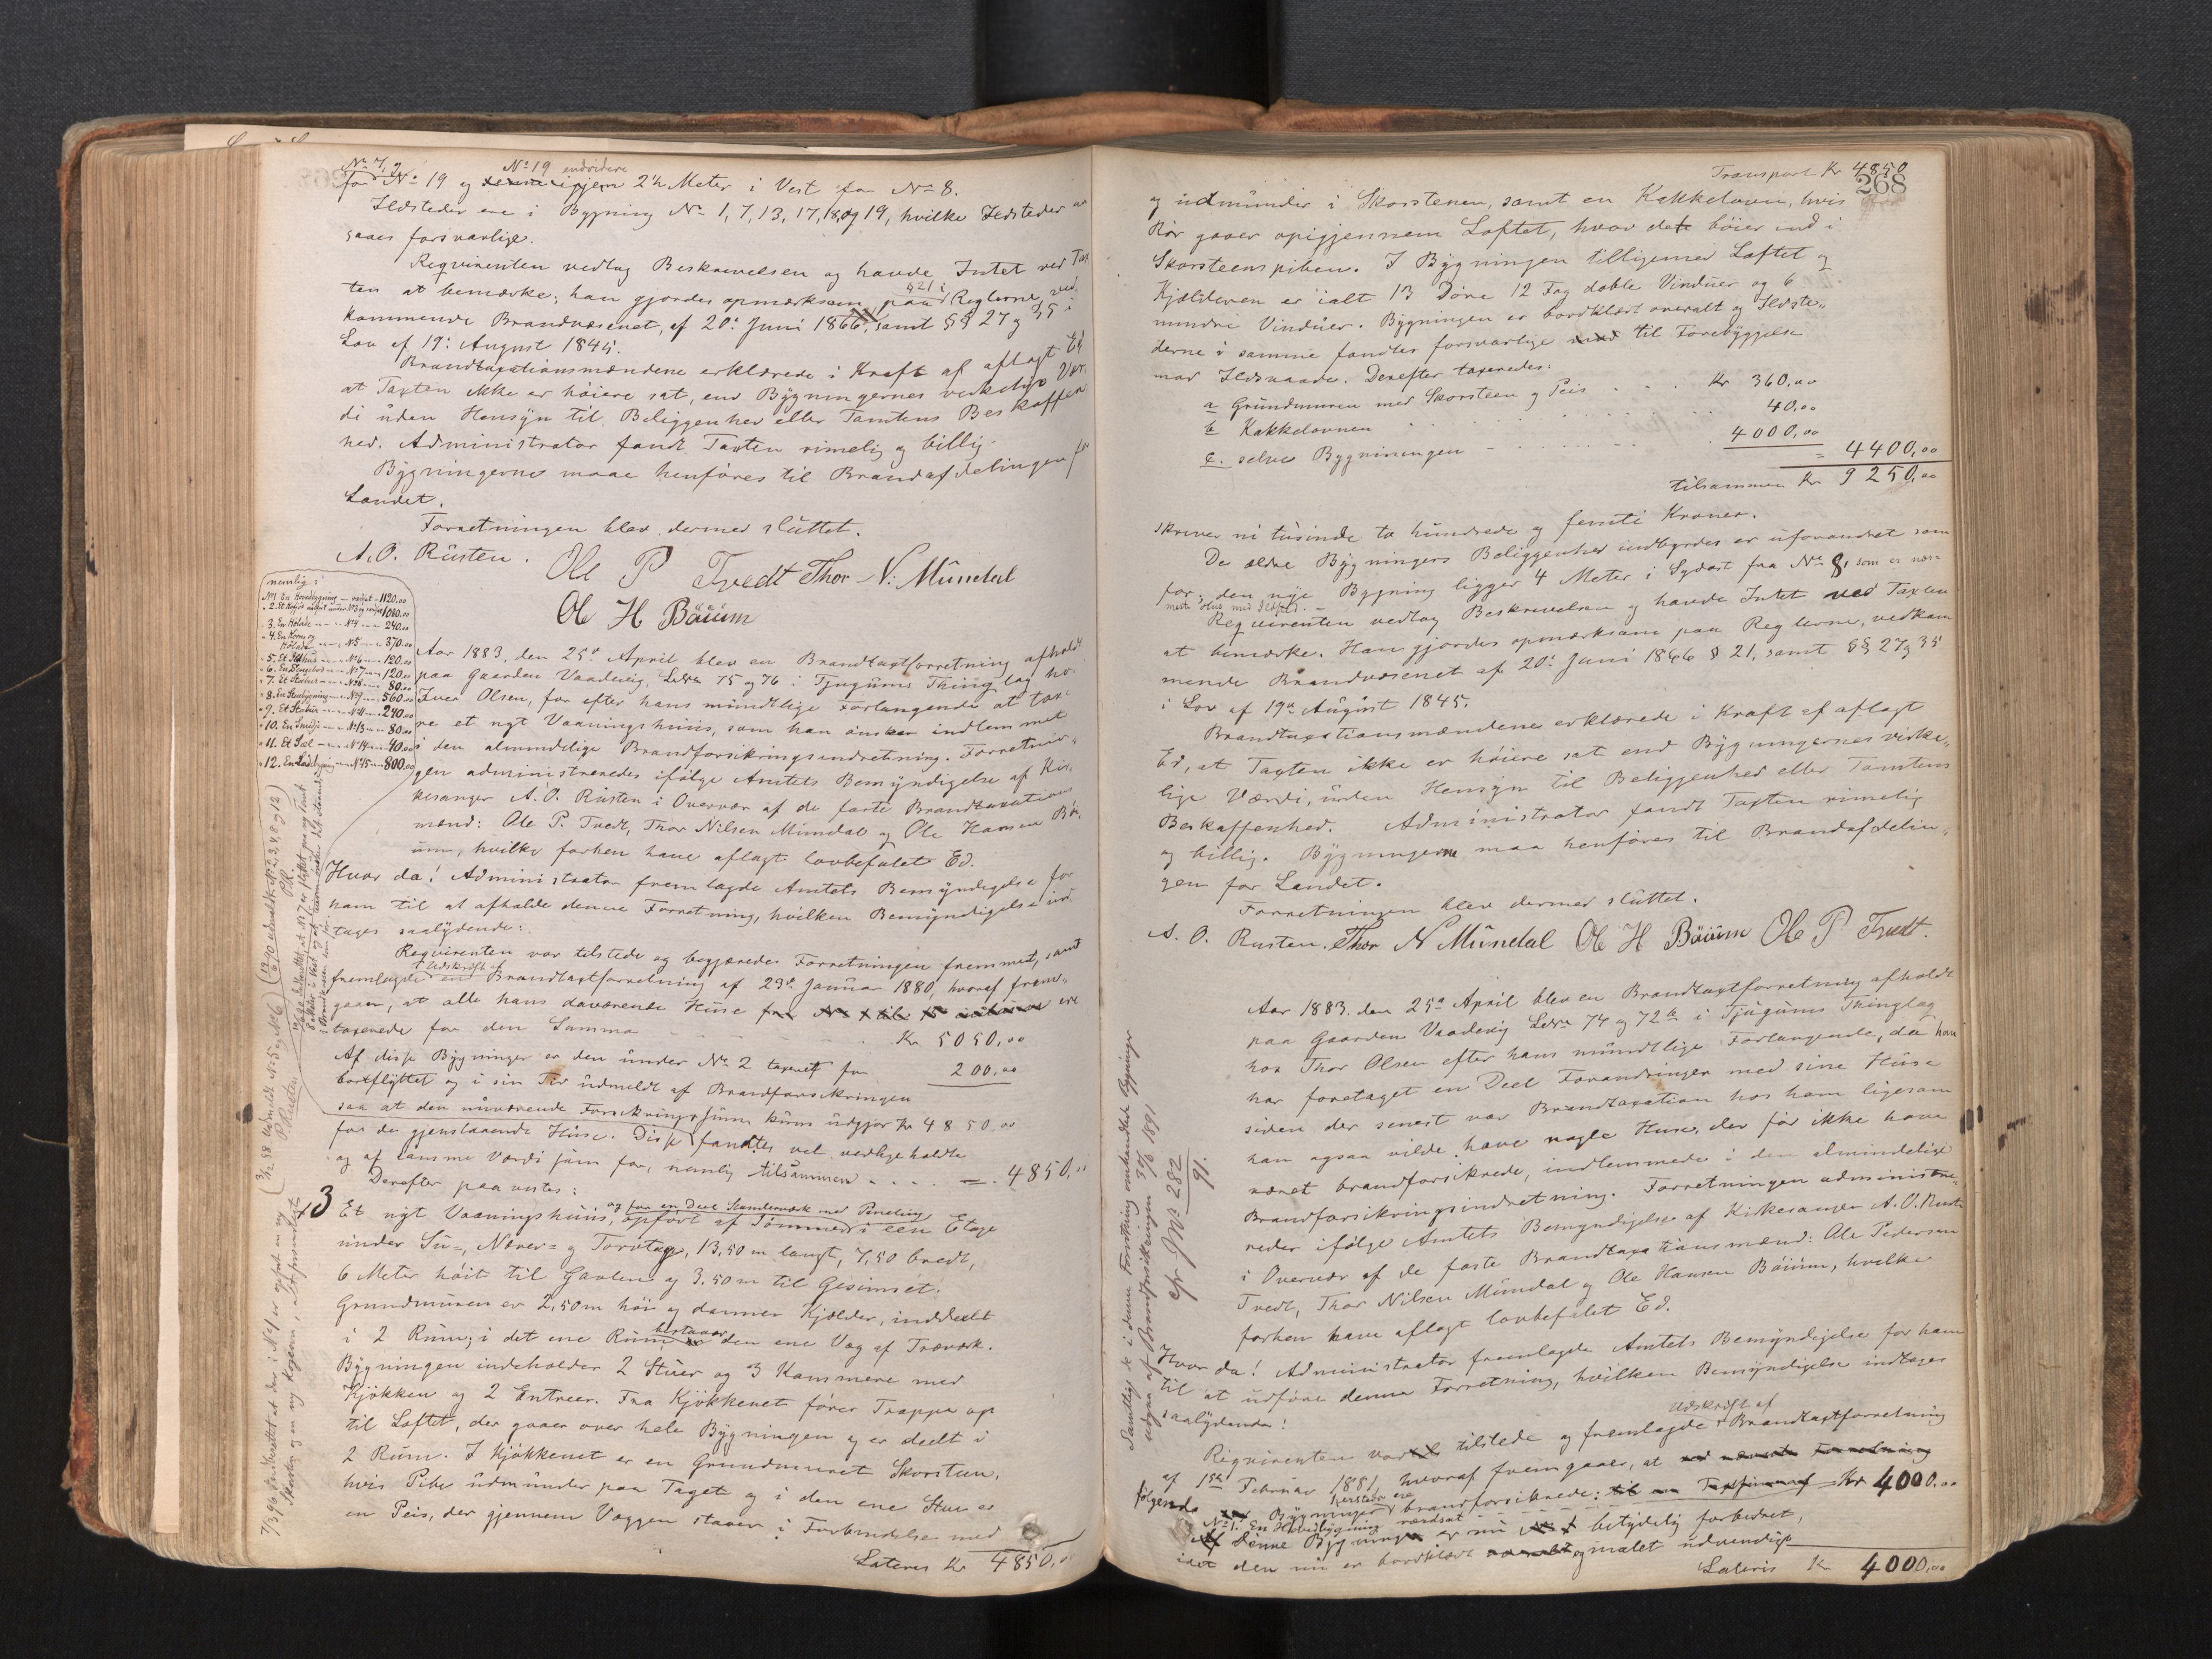 No 7,
No 19 endvidere
for No 19 og igjen 2½ Meter i Vest for No 8.
Ildsteder ere i Bygning No 1, 7, 13, 17, 18, og 19, hvilke Ildsteder
saaes forsvarlige.
Reqvirenten vedtog Beskrivelsen og havde Intet ved Tax
ten at bemærke; han gjordes opmærksom paa § 21 i Reglerne, ved
kommende Brandvæsenet, af 20de Juni 1866, samt §§ 27 og 35 i
Lov af 19de August 1845.
Brandtaxationsmændene erklærede i Kraft af aflagt Ed
at Taxten ikke er høiere sat, end Bygningernes virkelige Vær
di uden Hensyn til Beliggenhed eller Tomtens Beskaffen
hed. Administrator fandt Taxten rimelig og billig.
Bygningerne maae henføres til Brandafdelingen for
Landet.
Forretningen blev dermed sluttet.
A. O. Rusten. Ole P Tvedt Thor N. Mundal
Ole H Böium
nemlig:
No 1 En Hovedbygning – værdsat – 1120.00
" 2. Et under No 3 og værdsat 1080.00
" 3. En Hølade No 4 240.00
" 4. En Korn og
Hölade No 5 370.00
" 5. Et No 6 120.00
" 6. En No 7 120.00
" 7. Et Stabur No 8 80.00
" 8. En No 9 560.00
" 9. Et Stabur No 11 240.00
" 10. En Smedje No 13 80.00
" 11. Et Sæl No 14 40.00
" 12. En No 15 800.00
Aar 1883, den 25de April blev en Brandtaxtforretning afholdt
paa Gaarden Vaadevig, LNo 75 og 76 i Tjugums Thinglag ho
Iver Olsen, for efter hans mundtlige Forlangende at taxe
re et nyt Vaaningshuus, som han ønsker indlemmet
i den almindelige Brandforsikringsindretning. Forretnin„
gen administreredes ifølge Amtets Bemyndigelse af Kir„
kesanger A. O. Rusten i Overvær af de faste Brandtaxations
mænd: Ole P. Tvedt, Thor Nilsen Mundal og Ole Hansen Bö„
ium, hvilke forhen have aflagt lovbefalet Ed.
Hvor da! Administrator fremlagde Amtets Bemyndigelse for
ham til at afholde denne Forretning, hvilken Bemyndigelse ind
tages saalydende:
Reqvirenten var tilstede og begjærede Forretningen fremmet, samt
fremlagde Udskrift af en Brandtaxtforretning af 29de Januar 1880, hvoraf frem„
gaaer, at alle hans daværende Huse ere
taxerede for den Summa Kr 5050,00
Af disse Bygninger er den under No 2 taxeret for 200,00
bortflyttet og i sin Tid udmeldt af Brandforsikringen
saa at den nuværende Forsikringssum kuns udgjør Kr 4850,00
for de gjenstaaende Huse. Disse fandtes vel vedligeholdte
og af samme Værdi som før, nemlig tilsammen . . . . = . 4850,00
Derefter paavistes:
13 Et nyt Vaaningshuus, opført af Tømmer og for en Deel Standerværk med Paneling i een Etage
under Su-, Næver- og Torvtag, 13,50 m langt, 7,50 bredt,
6 Meter høit til Gavlen og 3.50 m til Gesimset.
Grundmuren er 2,50 m høi og danner Kjælder, inddeelt
i 2 Rum; i det ene Rum bestaaer den ene Væg af Træværk.
Bygningen indeholder 2 Stuer og 3 Kammere med
Kjøkken og 2 Entreer. Fra Kjøkkenet fører Trappe op
til Loftet, der gaaer over hele Bygningen og er deelt i
2 Rum. I Kjøkkenet er en Grundmuret Skorsteen,
hvis Pibe udmunder paa Taget og i den ene Stue er
en Peis, der gjennem Væggen staaer i Forbindelse med
Lateris Kr 4850,00
Transport Kr 4850
268
og udmunder i Skorstenen, samt en Kakkelovn, hvis
Rør gaaer opigjennem Loftet, hvor det bøier ind i
Skorsteenspiben. I Bygningen tilligemed Loftet og
Kjælderen er ialt 13 Døre 12 Fag doble Vinduer og 6
mindre Vinduer. Bygningen er bordklædt overalt og Ildste„
derne i samme fandtes forsvarlige til Forebyggelse
mod Ildsvaade. Derefter taxeredes:
a Grundmuren med Skorsteen og Peis . . . Kr 360,00
b Kakkelovnen . . . 40,00
c. selve Bygningen . . . 4000,00
= 4400,00
tilsammen Kr 9250,00
skriver ni tusinde to hundrede og femti Kroner.
De ældre Bygningers Beliggenhed indbyrdes er uforandret som
før; den nye Bygning ligger 4 Meter i Sydost fra No 8, som er nær-
meste Hus med Ildsted. –
Reqvirenten vedtog Beskrivelsen og havde Intet ved Taxten
at bemærke. Han gjordes opmærksom paa Reglerne, vedkom
mende Brandvæsenet af 20de Juni 1866 § 21, samt §§ 27 og 35
i Lov af 19de August 1845.
Brandtaxationsmændene erklærede i Kraft af aflagt
Ed, at Taxten ikke er høiere sat end Bygningernes virke„
lige Værdi, uden Hensyn til Beliggenhed eller Tomtens
Beskaffenhed. Administrator fandt Taxten rimelig
og billig. Bygningerne maa henføres til Brandafdelin„
gen for Landet.
Forretningen blev dermed sluttet.
A. O. Rusten. Thor N Mundal Ole H Böium Ole P Tvedt.
Aar 1883. den 25de April blev en Brandtaxtforretning afholdt
paa Gaarden Vaadevig LNo 74 og 72b i Tjugums Thinglag
hos Thor Olsen efter hans mundtlige Forlangende, da han
har foretaget en Deel Forandringer med sine Huse
siden der senest var Brandtaxation hos ham ligesom
han ogsaa vilde have nogle Huse, der før ikke have
været brandforsikrede, indlemmede i den almindelige
Brandforsikringsindretning. Forretningen administre„
redes ifølge Amtets Bemyndigelse af Kirkesanger A. O. Rusten
i Overvær af de faste Brandtaxationsmænd: Ole Pedersen
Tvedt, Thor Nilsen Mundal og Ole Hansen Böium, hvilke
forhen have aflagt lovbefalet Ed.
Hvor da! Administrator fremlagde Amtets Bemyndigelse for ham
til at udføre denne Forretning, hvilken Bemyndigelse indtages
saalydende:
Reqvirenten var tilstede og fremlagde Udskrift af Brandtaxtforretning
af 1ste Februar 1881, hvoraf fremgaaer, at
følgende Bygninger hersteds ere brandforsikrede:
No 1. En Hovedbygning værdsat Kr 4000,00
Denne Bygning er nu betydelig forbedret,
idet den nu er bordklædt og malet udvendigt
Lateris Kr 4000,00
Samtlige de i denne Forretning omhandlede Bygninger
udgaa af Brandforsikringen 30/6 1891
cfr JNo 282/91.